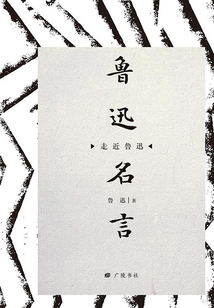 鲁迅名言
走近鲁迅
鲁迅|著
广陵书社